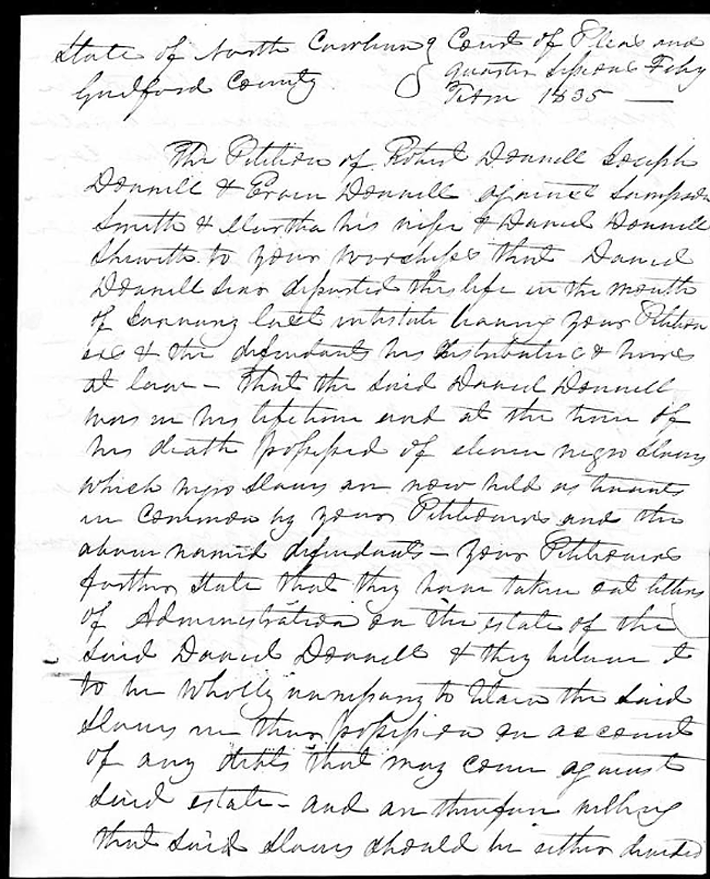 State of North Carolina } Court of Pleas and
Guilford County } Quarter Sessions Feby
Term 1835 —
The Petition of Robert Donnell Joseph
Donnell & Erwin Donnell against Sampson
Smith & Martha his wife & Daniel Donnell
Sheweth to your worships that Daniel
Donnell Senr departed this life in the month
of January last intestate leaving your Petition
ers & the defendants his distributees & heirs
at law – that the said Daniel Donnell
was in his lifetime and at the time of
his death possessed of eleven negro slaves
which negro slaves are now held as tenants
in common by your Petitioners and the
above named defendants – your Petitioners
further state that they have taken out letters
of Administration on the estate of the
said Daniel Donnell & they believe it
to be wholly unnecessary to retain the said
slaves in their possession on account
of any debts that may come against
said estate – and are therefore willing
that said slaves should be either divided